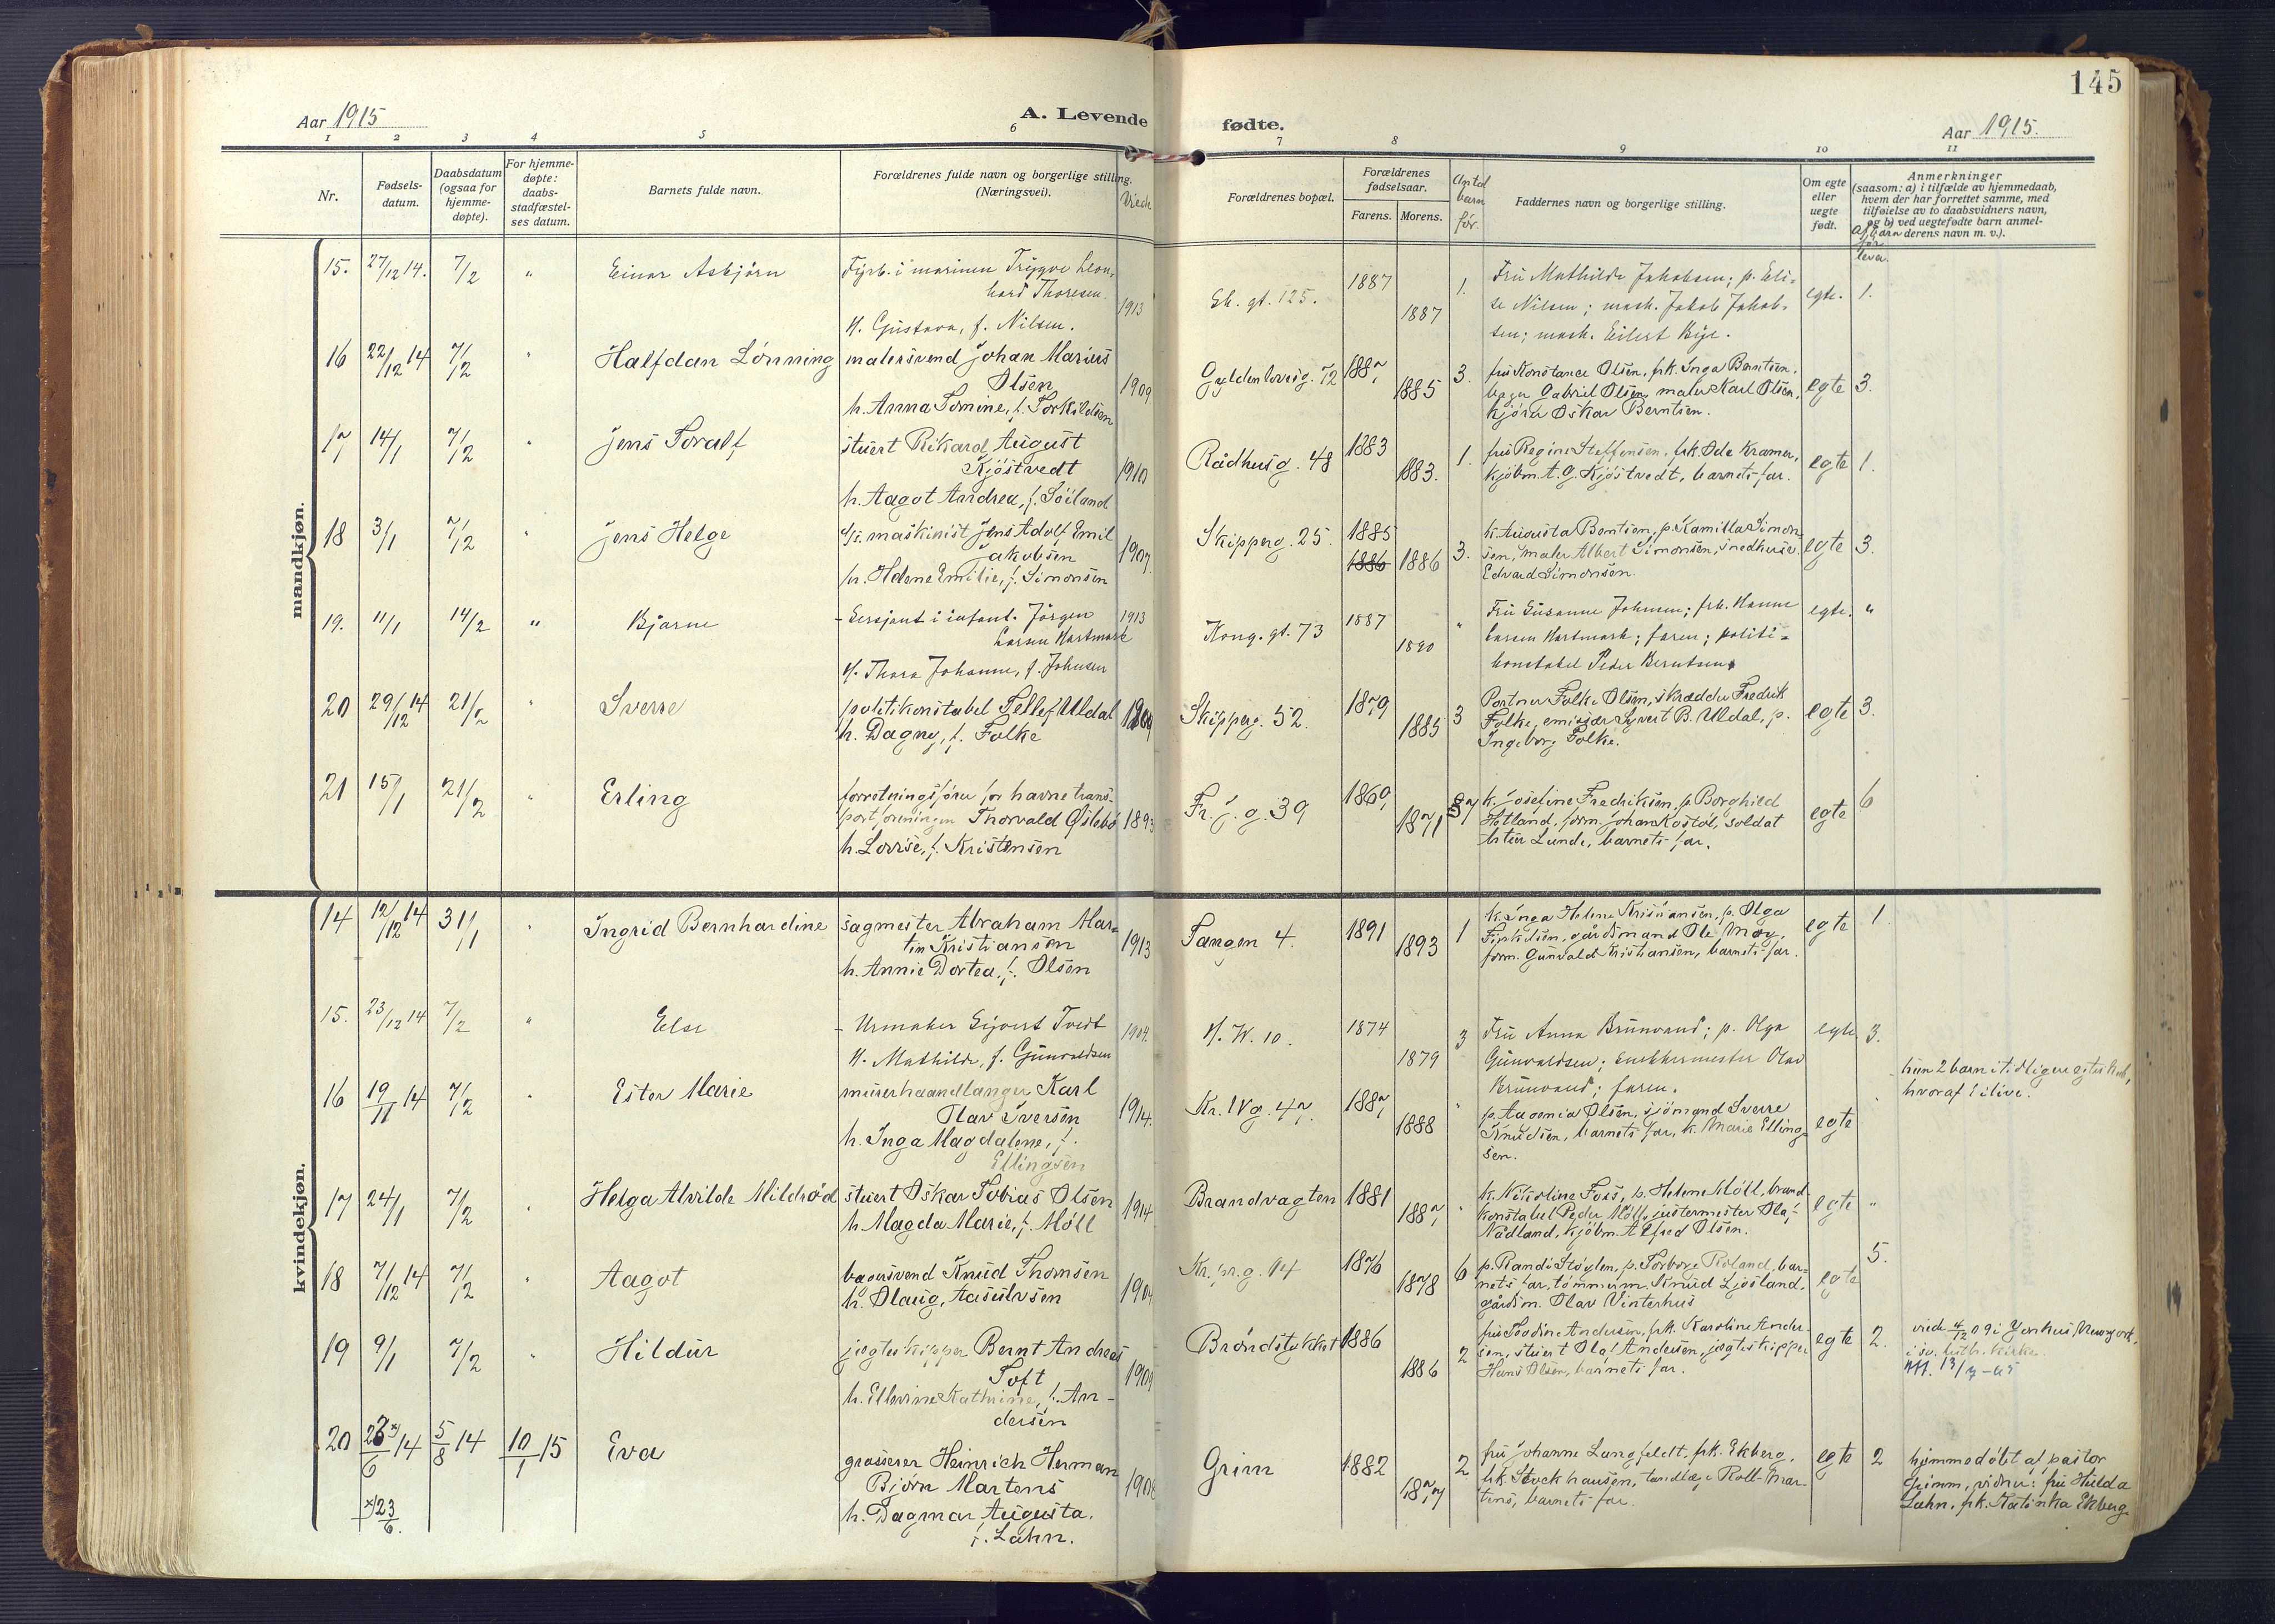 145
Aar 1915
A. Levende fødte.
Aar 1915.
1 2 3 4 5 6 7 8 9 10 11
Nr.
Fødsels-
datum.
Daabsdatum
(ogsaa for
hjemme-
døpte).
For hjemme-
døpte:
daabs-
stadfæstel-
ses datum.
Barnets fulde navn.
Forældrenes fulde navn og borgerlige stilling.
(Næringsvei).
Viede
Forældrenes bopæl.
Forældrenes
fødselsaar.
Farens. Morens.
Antal
barn
før.
Faddernes navn og borgerlige stilling.
Om egte
eller
uegte
født.
Anmerkninger
(saasom: a) i tilfælde av hjemmedaab,
hvem der har forrettet samme, med
tilføielse av to daabsvidners navn,
og b) ved uegtefødte barn anmel-
derens navn m. v.).
Af barn
før
lever
mandkjøn.
15. 27/12 14. 7/2 " Einar Asbjørn
Fyrb. i marinen Trygve Leon-
hard Thoresen.
H. Gustava, f. Nilsen.
1913
Eh. gt. 125.
1887
1887
1.
Fru Mathilde Jakobsen; p. Eli-
se Nilsen; mask. Jakob Jakob-
sen; mask. Eilert Bye.
egte. 1.
16 22/12 14 7/2 " Halfdan Lønning
malersvend Johan Marius
Olsen
h. Anna Tomine, f. Torkildsen
1909.
Gyldenløvesg. 72
1887
1885
3.
fru Konstance Olsen, frk. Inga Berntsen,
bager Gabriel Olsen, maler Karl Olsen,
kjører Oskar Berntsen.
egte 3.
17 14/1 7/2 " Jens Toralf
stuert Rikard August
Kjöstvedt
h. Aagot Andrea, f. Söiland
1910
Rådhusg. 48
1883
1883.
1.
fru Regine Steffensen, frk. Oda Kramer,
kjøbm. A. G. Kjöstvedt, barnets far.
egte 1.
18 3/1 7/2 " Jens Helge
d/s. maskinist Jens Adolf Emil
Jakobsen
h. Helene Emilie, f. Simonsen
1907.
Skipperg. 25.
1885
1886 1886
3.
k. Augusta Berntsen, p. Kamilla Simon-
sen, maler Albert Simonsen, snedkersv.
Edvard Simonsen.
egte 3.
19. 11/1 14/2 " Bjarne
- Sersjant i infant. Jørgen
Larsen Hartmark
H. Thora Johanne, f. Johnsen
1913
Kong. gt. 73
1887
1890
"
Fru Susanne Johnsen; frk. Hanne
Larsen Hartmark; faren; politi-
konstabel Peder Berntsen.
egte. "
20 29/12 14 21/2 " Sverre
politikonstabel Tellef Uldal
h. Dagny, f. Folke
1909
Skipperg. 52.
1879
1885
3
Portner Folke Olsen, skrædder Fredrik
Folke, emissær Syvert B. Uldal, p.
Ingeborg Folke.
egte 3.
21 15/1 21/2 " Erling
forretningsfører for havnetrans-
portforeningen Thorvald Øslebø
h. Lovise, f. Kristensen
1893
Fr. j. g. 39
1869
1871
7
k. Josefine Fredriksen, p. Borghild
Hetland, form. Johan Kostøl, soldat
Peter Lunde, barnets far.
egte 6
kvindekjøn.
14 12/12 14 31/1 " Ingrid Bernhardine
sagmester Abraham Mar-
tin Kristiansen
h. Annie Dortea, f. Olsen
1913
Tangen 4.
1891
1893
1
k. Inga Helene Kristiansen, p. Olga
Terkelsen, gårdmand Ole Moy,
form. Gunvald Kristiansen, barnets far.
egte 1.
15. 23/12 14 7/2 " Else
- Urmaker Sigvert Tvedt
H. Mathilde, f. Gunvaldsen
1904.
H. W. 10.
1874
1879
3
Fru Anna Brunvand; p. Olga
Gunvaldsen; snekkermester Olav
Brunvand; faren.
egte 3.
16 19/11 14 7/2 " Ester Marie
murerhaandlanger Karl
Olav Iversen
h. Inga Magdalene, f.
Ellingsen
1914.
Kr. IV g. 47.
1887
1888
"
p. Augonia Olsen, sjömand Sverre
Knudsen, barnets far, k. Marie Elling-
sen.
egte "
hun 2 barn i tidligere egteskab,
hvoraf 1 i live.
17 24/1 7/2 " Helga Alvilde Mildrød
stuert Oskar Tobias Olsen
h. Magda Marie, f. Möll
1914
Brandvagten
1881
1887
"
k. Nikoline Foss, p. Helene Möll, brand-
konstabel Peder Möll, justermester Olaf
Nådland, kjøbm. Alfred Olsen.
egte "
18 7/12 14 7/2 " Aagot
bagersvend Knud Thomsen
h. Olaug, Aasulvsen
1904
Kr. pr. g. 14
1876
1878
6
p. Randi Støylen, p. Torborg Roland, bar-
nets far, tömmerm. Knud Ljosland,
gårdm. Olav Vinterhus
egte 5.
19 9/1 7/2 " Hildur
jagtskipper Bernt Andreas
Toft
h. Ellevine Kathrine, f. An-
dersen
1909
Brøndstykket
1886
1886
2
fru Tovdine Andersen, frk. Karoline Ander-
sen, stuert Olaf Andersen, jagtskipper
Hans Olsen, barnets far.
egte 2.
viede 4/12 09 i Yonkers, Newyork,
i sv. luth. kirke.
Att. 13/7-45
20 23 x)/6 14 5/8 14 10/1 15 Eva
x) 23/6.
grosserer Heinrich Herman
Bjørn Martens
h. Dagmar Augusta,
f. Lahn.
1908
Grim
1882
1877
2
fru Johanne Langfeldt, frk. Ekberg,
frk. Stockhausen, tandlæge Rolf Mar-
tens, barnets far.
egte 2
hjemmedöbt af pastor
Grimm, vidner: fru Hulda
Lahn, frk. Katinka Ekberg